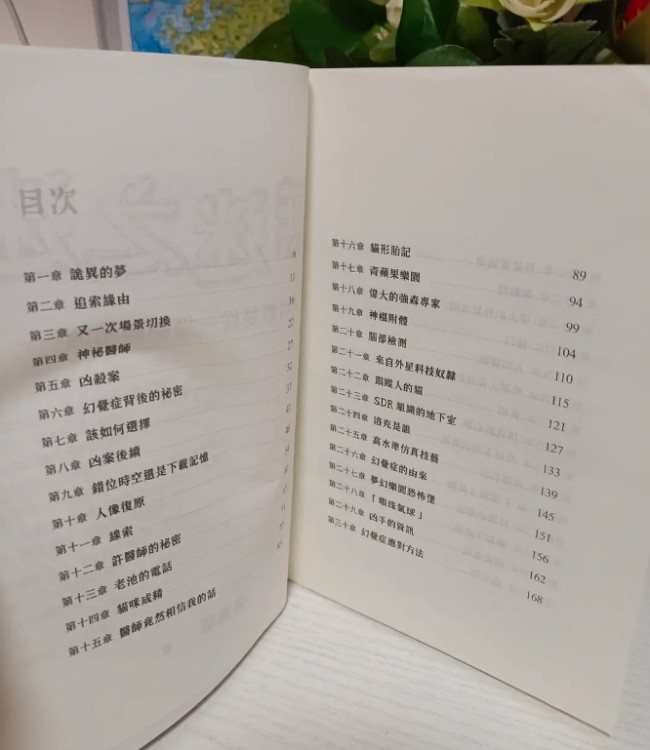 目次
第一章 詭異的夢 6
第二章 追索緣由 11
第三章 又一次場景切換 16
第四章 神祕醫師 22
第五章 凶殺案 27
第六章 幻覺症背後的祕密 32
第七章 該如何選擇 37
第八章 凶案後續 43
第九章 錯位時空還是下載記憶
第十章 人像復原
第十一章 線索
第十二章 許醫師的祕密
第十三章 老池的電話
第十四章 貓咪成精
第十五章 醫師竟然相信我的話
第十六章 貓形胎記 89
第十七章 青蘋果樂園 94
第十八章 偉大的強森專家 99
第十九章 神棍附體 104
第二十章 腦部檢測 110
第二十一章 來自外星科技奴隸 115
第二十二章 跟蹤人的貓 121
第二十三章 SDR組織的地下室 127
第二十四章 洛克是誰 133
第二十五章 高水準仿真技藝 139
第二十六章 幻覺症的由來 145
第二十七章 夢幻樂園恐怖堡 151
第二十八章 「眼珠氣球」 156
第二十九章 凶手的資訊 162
第三十章 幻覺症應對方法 168